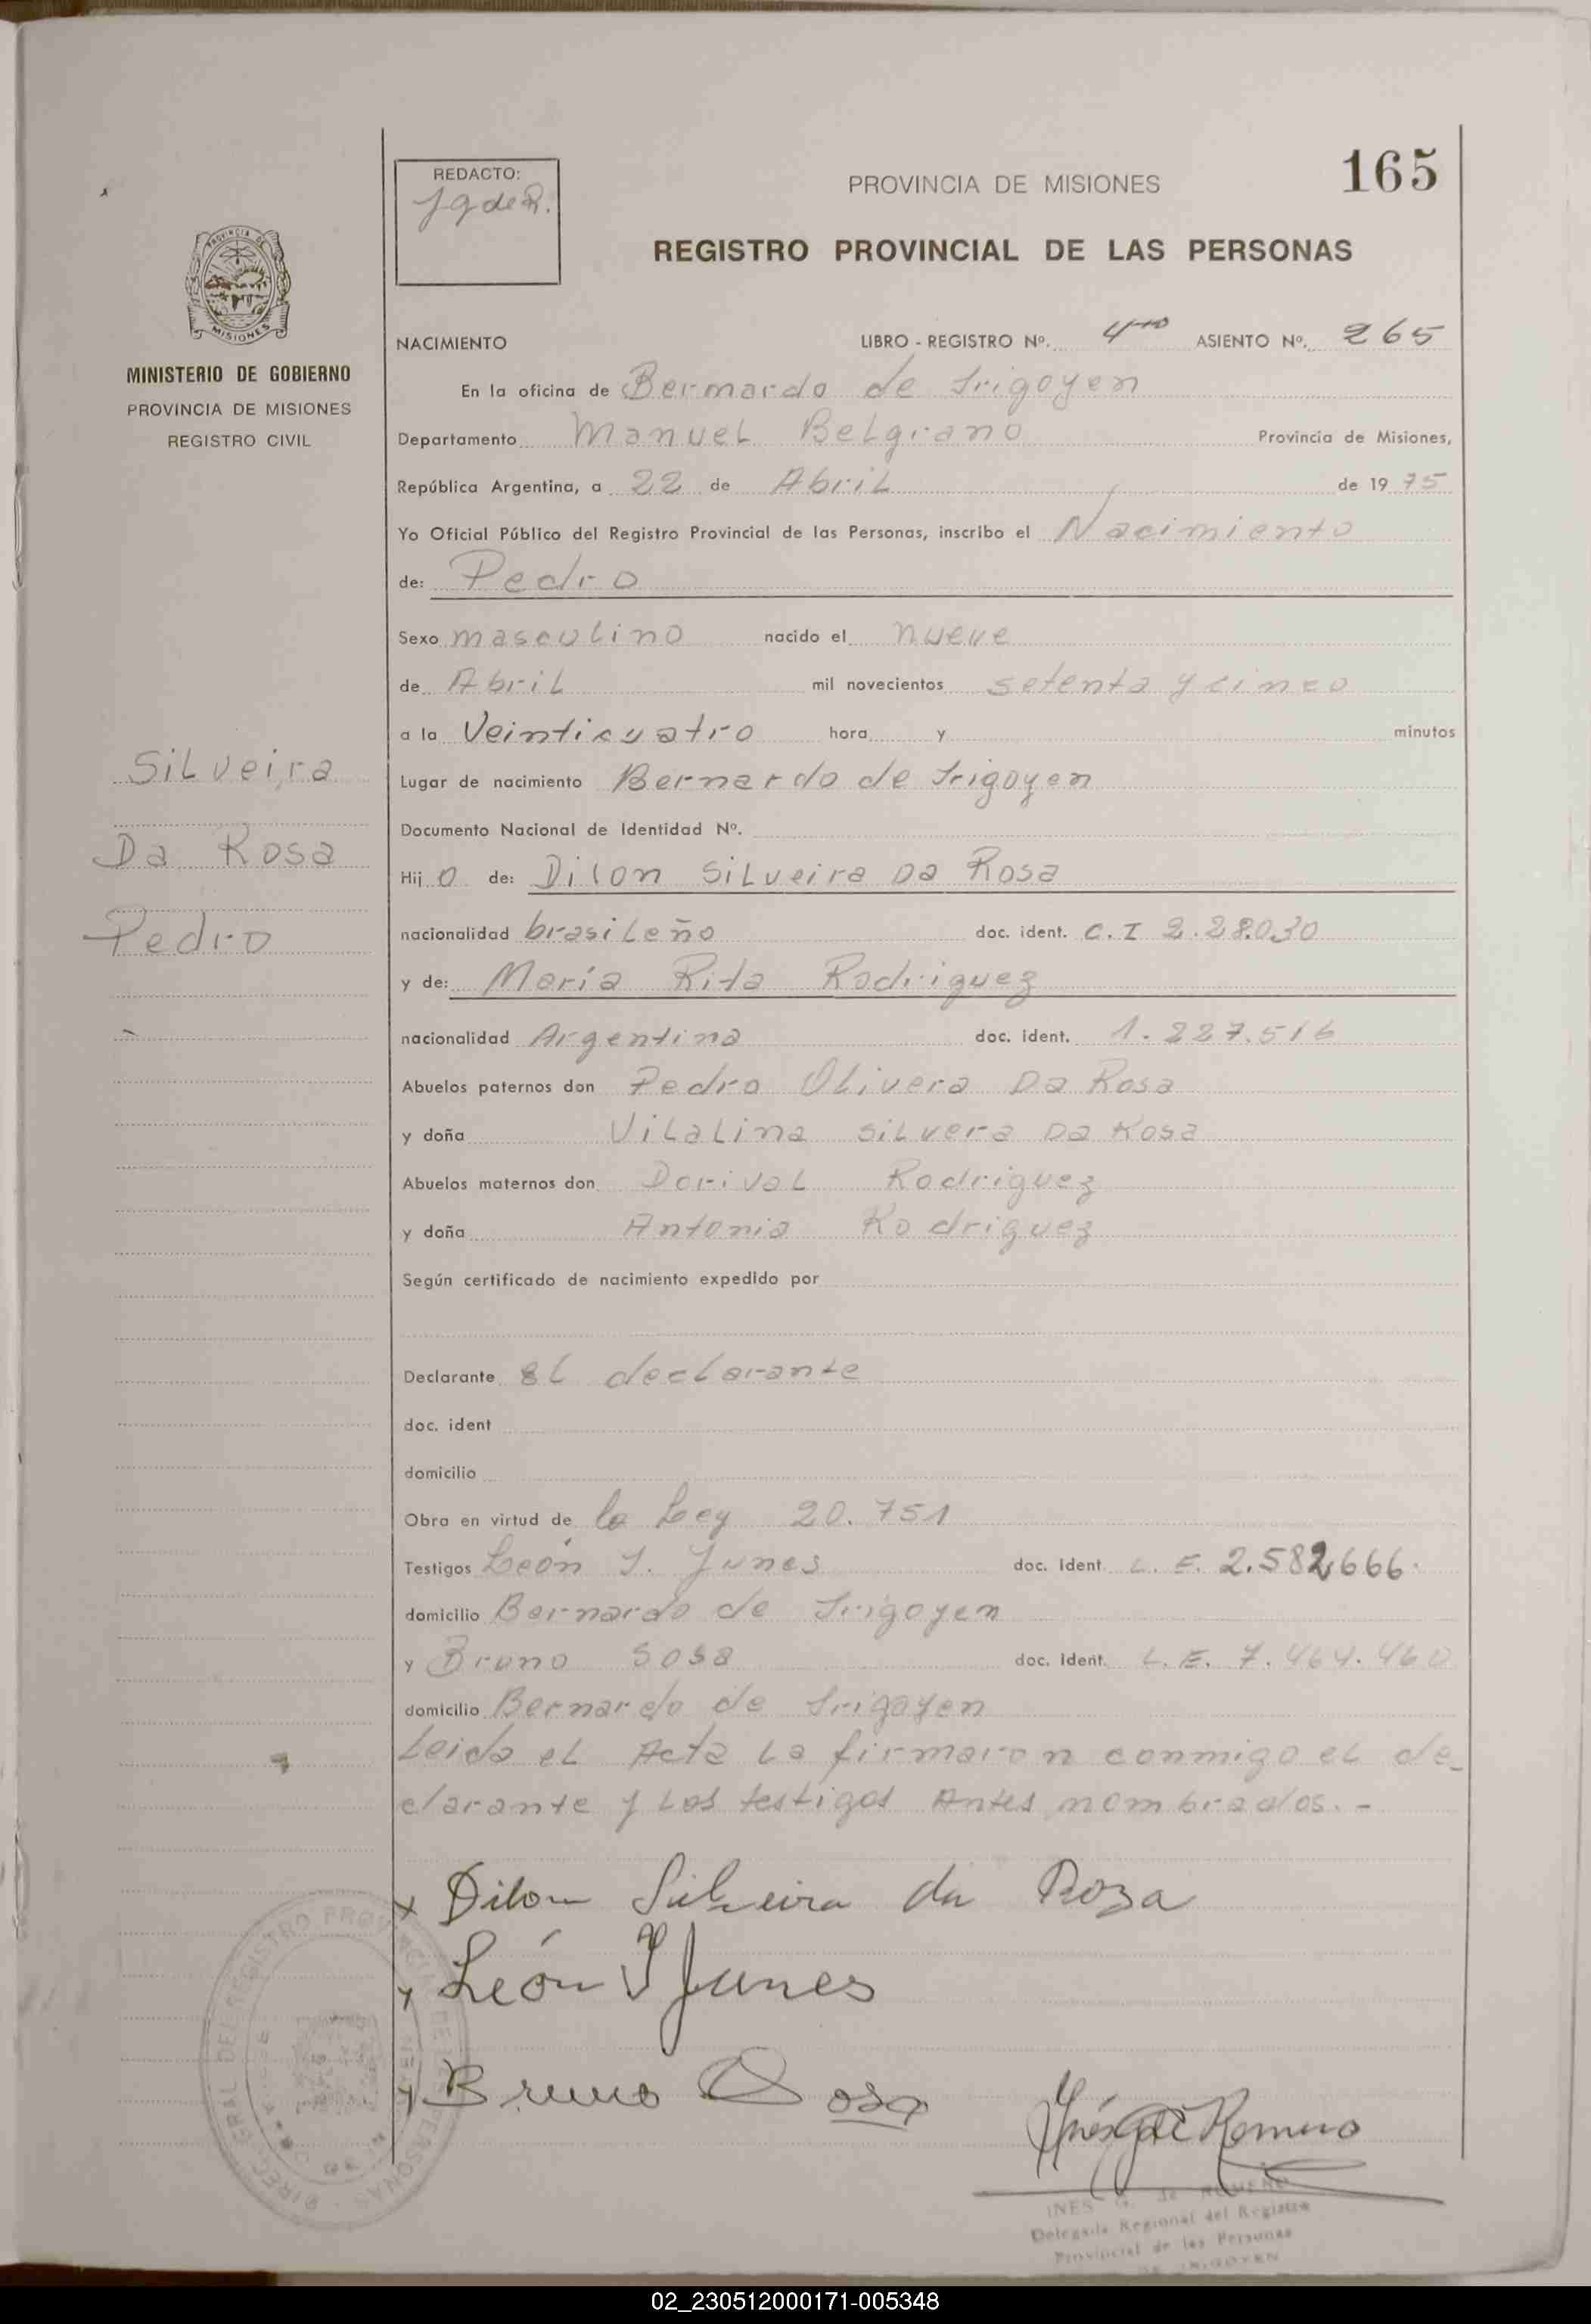 165
REDACTO:
J g de R.
PROVINCIA DE MISIONES
REGISTRO PROVINCIAL DE LAS PERSONAS
PROVINCIA DE
MISIONES
MINISTERIO DE GOBIERNO
PROVINCIA DE MISIONES
REGISTRO CIVIL
Silveira
Da Rosa
Pedro
NACIMIENTO LIBRO - REGISTRO Nº. 4to ASIENTO Nº. 265
En la oficina de Bernardo de Irigoyen
Departamento Manuel Belgrano Provincia de Misiones,
República Argentina, a 22 de Abril de 19 75
Yo Oficial Público del Registro Provincial de las Personas, inscribo el Nacimiento
de: Pedro
Sexo masculino nacido el nueve
de Abril mil novecientos setenta y cinco
a la Veinticuatro hora y minutos
Lugar de nacimiento Bernardo de Irigoyen
Documento Nacional de Identidad Nº.
Hij o de: Dilon Silveira Da Rosa
nacionalidad brasileño doc. ident. C. I 2.28.030
y de: María Rita Rodriguez
nacionalidad Argentina doc. ident. 1.227.516
Abuelos paternos don Pedro Olivera Da Rosa
y doña Vilalina Silvera Da Rosa
Abuelos maternos don Dorival Rodriguez
y doña Antonia Rodriguez
Según certificado de nacimiento expedido por
Declarante El declarante
doc. ident
domicilio
Obra en virtud de la Ley 20.751
Testigos León J. Junes doc. Ident. L. E. 2.582.666.
domicilio Bernardo de Irigoyen
y Bruno Sosa doc. Ident. L. E. 7.464.460
domicilio Bernardo de Irigoyen
Leida el Acta la firmaron conmigo el de-
clarante y los testigos Antes nombrados. -
x Dilon Silveira da Roza
x León J Junes
x Bruno Sosa
Inés G de Romero
INES G. de ROMERO
Delegada Regional del Registro
Provincial de las Personas
DE IRIGOYEN
DIREC. GRAL DEL REGISTRO PROVINCIAL DE LAS PERSONAS
02_230512000171-005348